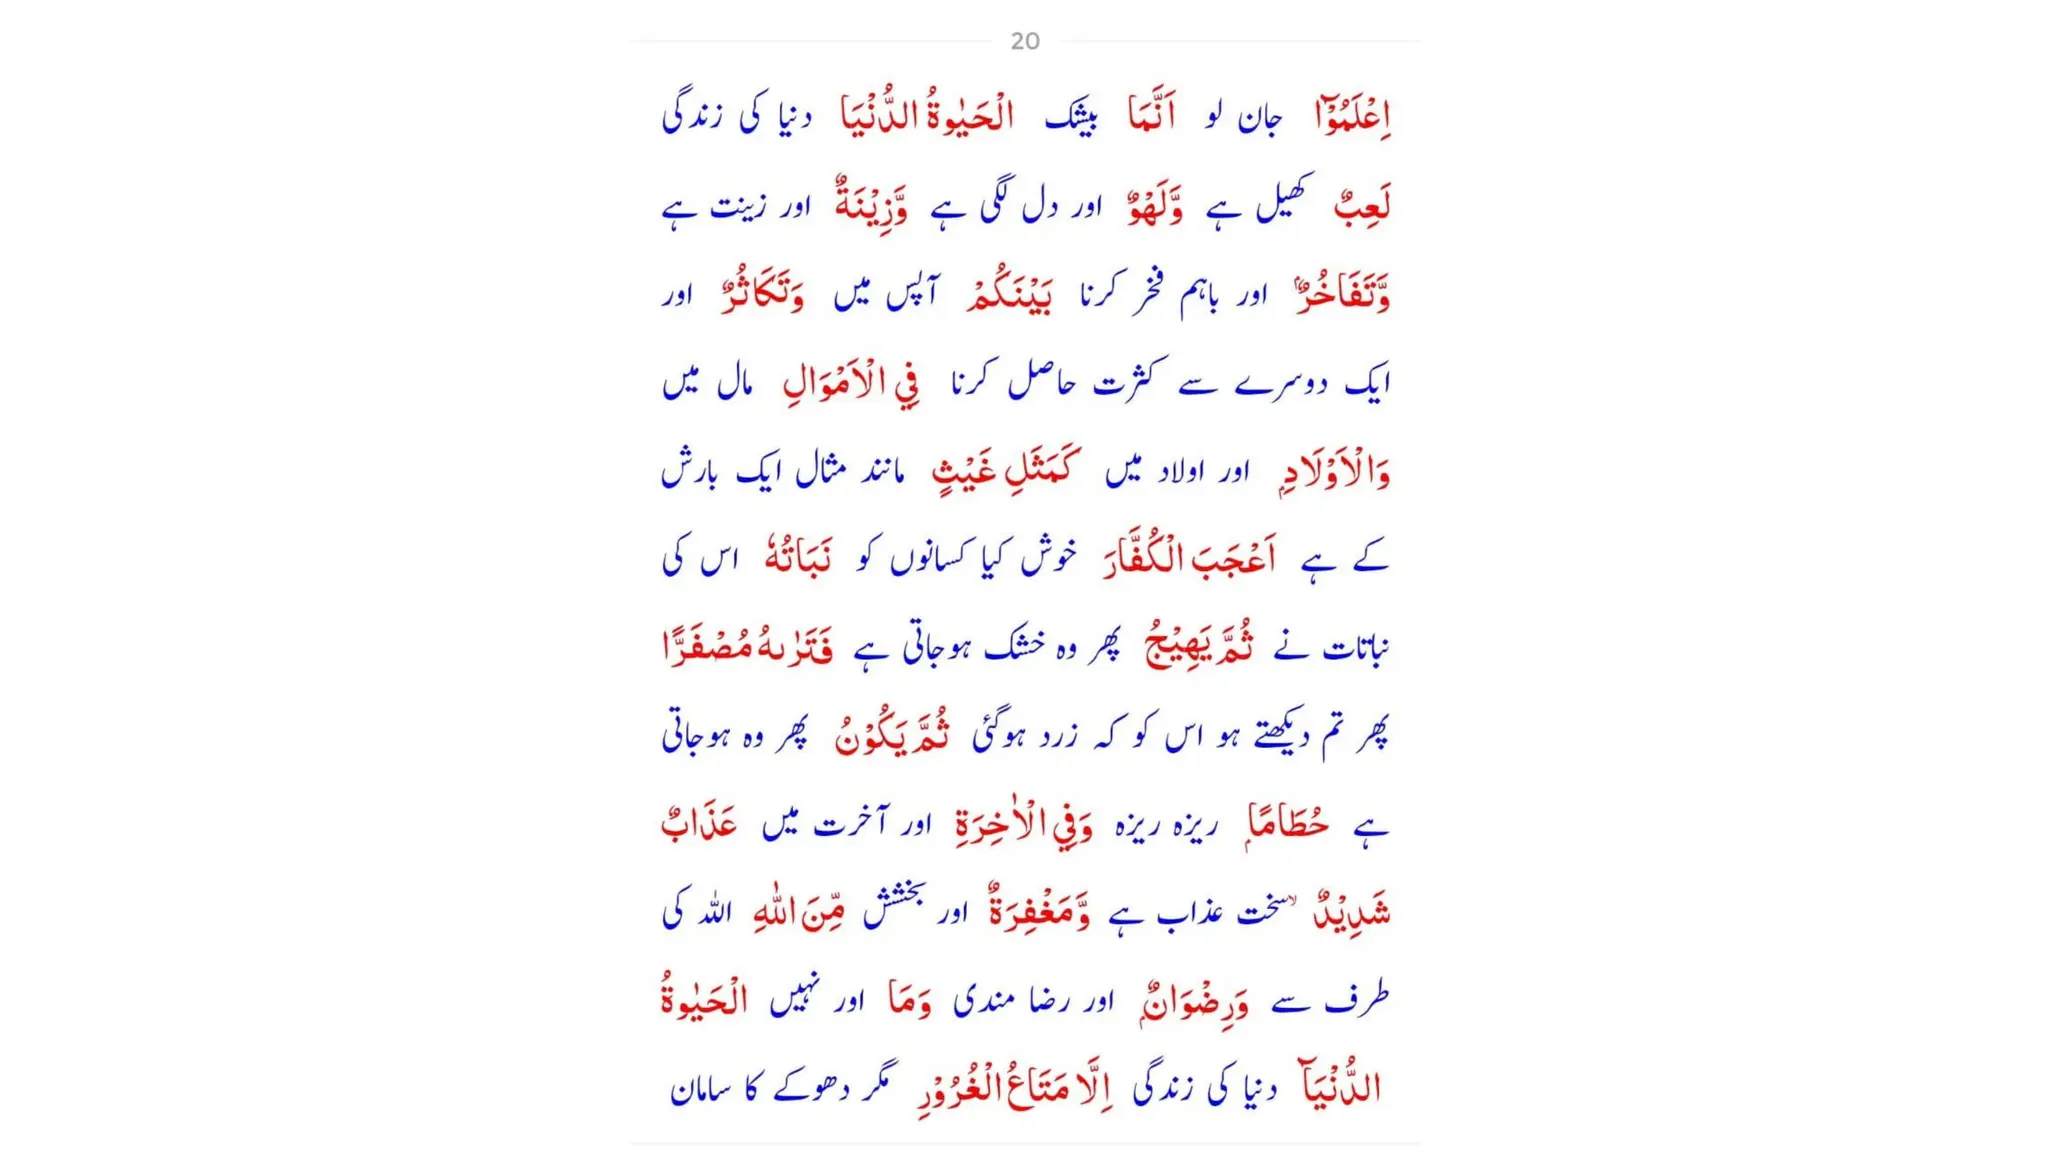 20
اِعْلَمُوْۤا جان لو اَنَّمَا بیشک الْحَیٰوةُ الدُّنْیَا دنیا کی زندگی
لَعِبٌ کھیل ہے وَّلَهْوٌ اور دل لگی ہے وَّزِیْنَةٌ اور زینت ہے
وَّتَفَاخُرٌۢ اور باہم فخر کرنا بَیْنَكُمْ آپس میں وَتَكَاثُرٌ اور
ایک دوسرے سے کثرت حاصل کرنا فِی الْاَمْوَالِ مال میں
وَالْاَوْلَادِؕ اور اولاد میں كَمَثَلِ غَیْثٍ مانند مثال ایک بارش
کے ہے اَعْجَبَ الْكُفَّارَ خوش کیا کسانوں کو نَبَاتُهٗ اس کی
نباتات نے ثُمَّ یَهِیْجُ پھر وہ خشک ہوجاتی ہے فَتَرٰىهُ مُصْفَرًّا
پھر تم دیکھتے ہو اس کو کہ زرد ہوگئی ثُمَّ یَكُوْنُ پھر وہ ہوجاتی
ہے حُطَامًاؕ ریزہ ریزہ وَفِی الْاٰخِرَةِ اور آخرت میں عَذَابٌ
شَدِیْدٌۙ سخت عذاب ہے وَّمَغْفِرَةٌ اور بخشش مِّنَ اللّٰهِ اللہ کی
طرف سے وَرِضْوَانٌؕ اور رضا مندی وَمَا اور نہیں الْحَیٰوةُ
الدُّنْیَاۤ دنیا کی زندگی اِلَّا مَتَاعُ الْغُرُوْرِ مگر دھوکے کا سامان